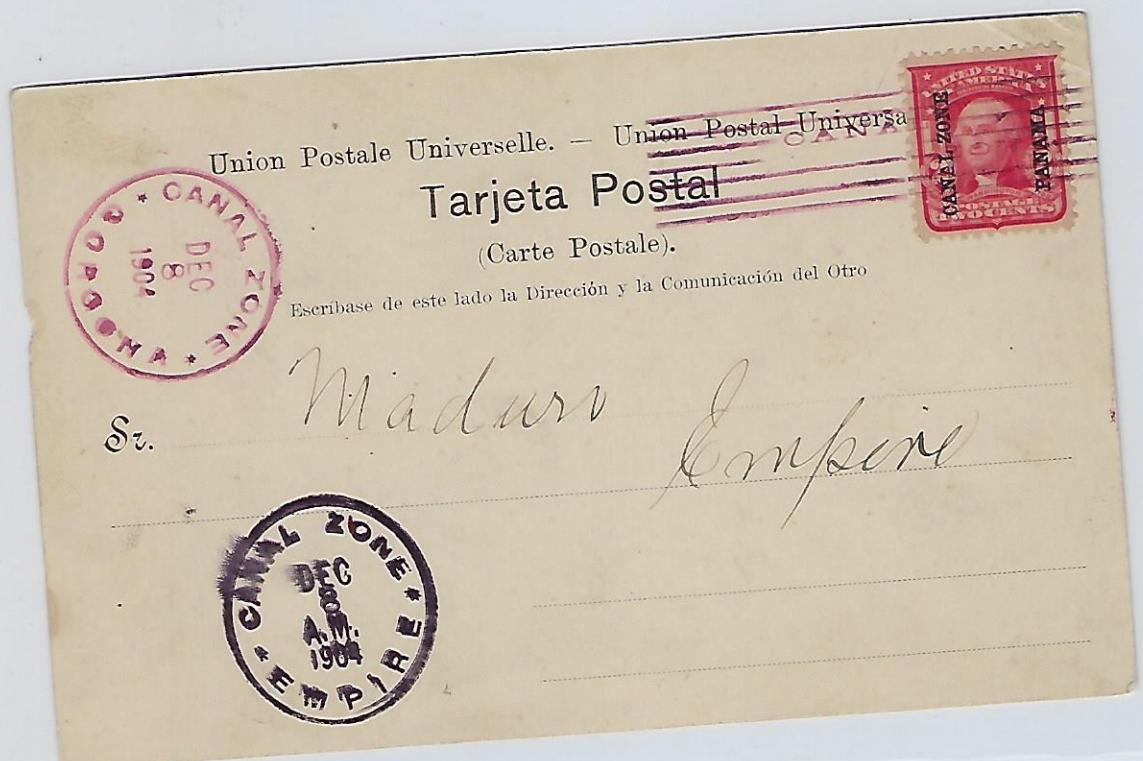 Union Postale Universelle. — Union Postal Universa
Tarjeta Postal
(Carte Postale).
Escríbase de este lado la Dirección y la Comunicación del Otro
CANA
UNITED STATES
AMERICA
CANAL ZONE
PANAMA
POSTAGE
TWO CENTS
CANAL ZONE
DEC
8
1904
GORGONA
Sr. Maduro
Empire
CANAL ZONE
DEC
8
A.M.
1904
EMPIRE